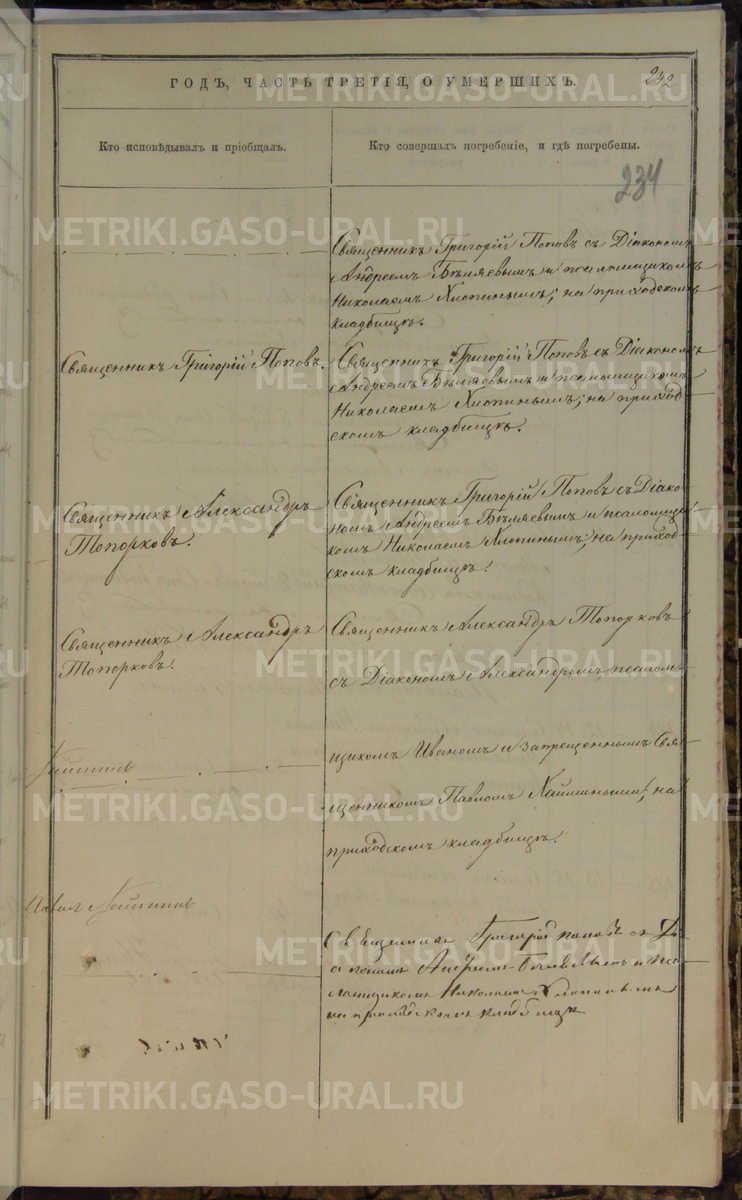 242
ГОДЪ, ЧАСТЬ ТРЕТІЯ, О УМЕРШИХЪ.
Кто исповѣдывалъ и пріобщалъ.
Кто совершалъ погребеніе, и гдѣ погребены.
234
Священникъ Григорій Поповъ съ Діакономъ
Андреемъ Бѣляевымъ и псаломщикомъ
Николаемъ Хлопинымъ; на приходскомъ
кладбищѣ.
Священникъ Григорій Поповъ.
Священникъ Григорій Поповъ съ Діакономъ
Андреемъ Бѣляевымъ и псаломщикомъ
Николаемъ Хлопинымъ; на приход
скомъ кладбищѣ.
Священникъ Александръ
Топорковъ.
Священникъ Григорій Поповъ съ Діако-
номъ Андреемъ Бѣляевымъ и псаломщи-
комъ Николаемъ Хлопинымъ; на приход
скомъ кладбищѣ.
Священникъ Александръ
Топорковъ.
Священникъ Александръ Топорковъ
съ Діакономъ Александромъ, псалом-
щикомъ Иваномъ и запрещеннымъ Свя-
щенникомъ Павломъ; на
приходскомъ кладбищѣ.
Павелъ
Священникъ Григорій Поповъ съ Ді
акономъ Андреемъ Бѣляевымъ и пса
ломщикомъ Николаемъ Хлопинымъ
на приходскомъ кладбищѣ
METRIKI.GASO-URAL.RU